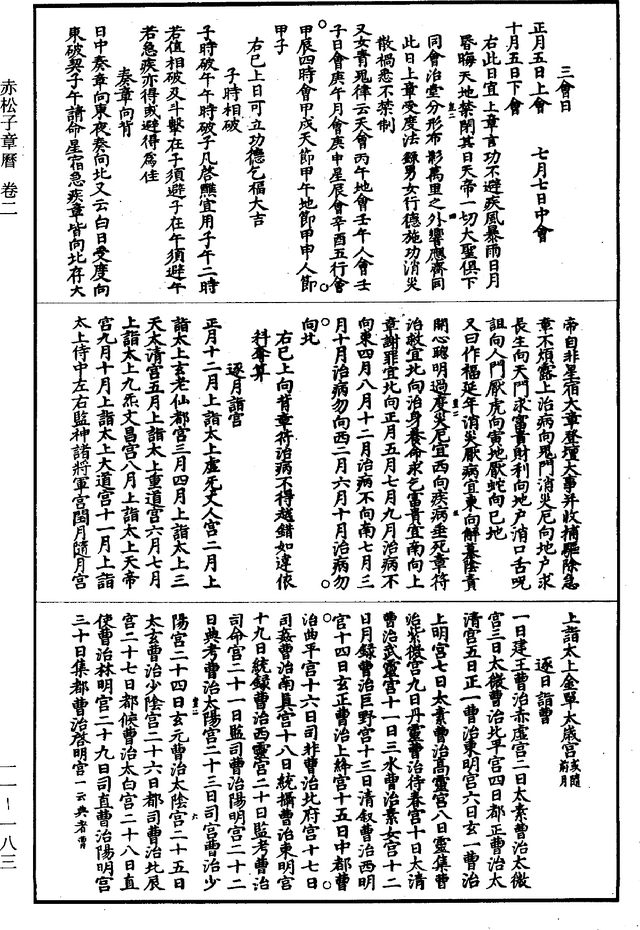 赤松子章曆 卷二
一一－一八三
三會日
正月五日上會 七月七日中會
十月五日下會
右此日宜上章言功不避疾風暴雨日月
昬晦天地禁閉其日天帝一切大聖俱下
同會治堂分形布影萬里之外響應齊同
此日上章受度法籙男女行德施功消災
散禍悉不禁制
又女青鬼律云天會丙午地會壬午人會壬
子日會庚午月會庚申星辰會辛酉五行會
甲辰四時會甲戌天節甲午地節甲申人節
甲子
右已上日可立功德乞福大吉
子時相破
子時破午午時破子凡啓醮宜用子午二時
若值相破及斗擊在子須避子在午須避午
若急疾亦得或避得為佳
奏章向背
日中奏章向東夜奏向北又云白日受度向
東破契子午請命星宿急疾章皆向北存大
帝自非星宿大章登壇大事并收捕驅除急
章不煩露上治病向鬼門消災厄向地户求
長生向天門求富貴財利向地户消口舌呪
詛向人門厭虎向寅地厭蛇向巳地
又曰作福延年消災厭病宜東向解墓陰責
開心聰明過度災厄宜西向疾病垂死章符
治救宜北向治身養命求乞富貴宜南向上
章謝罪宜北向正月五月七月九月治病不
向東四月八月十二月治病不向南七月三
月十月治病勿向西二月六月十月治病勿
向北
右已上向背章符治病不得越錯如違依
科奪筭
逐月詣宮
正月十二月上詣太上虛无丈人宮二月上
詣太上玄老仙都宮三月四月上詣太上三
天太清宮五月上詣太上重道宮六月七月
上詣太上九炁丈昌宮八月上詣太上天帝
宮九月十月上詣太上大道宮十一月上詣
太上侍中左右監神諸將軍宮閏月隨月宮
上詣太上金單太歲宮或隨前月
逐日詣曹
一日建王曹治赤虛宮二日太素曹治太微
宮三日太微曹治北平宮四日都正曹治太
清宮五日正一曹治東明宮六日玄一曹治
上明宮七日太素曹治高靈宮八日靈集曹
治紫微宮九日丹靈曹治待春宮十日太清
曹治武靈宮十一日三水曹治素女宮十二
日月錄曹治巨野宮十三日清叙曹治西明
宮十四日玄正曹治上絳宮十五日中都曹
治曲平宮十六日司非曹治北府宮十七日
司姦曹治南真宮十八日統攝曹治東明宮
十九日統錄曹治西靈宮二十日監考曹治
司命宮二十一日監司曹治陽明宮二十二
日典考曹治太陽宮二十三日司官曹治少
陽宮二十四日玄元曹治太陰宮二十五日
太玄曹治少陰宮二十六日都司曹治北辰
宮二十七日都候曹治太白宮二十八日直
使曹治林明宮二十九日司直曹治陽明宮
三十日集都曹治啓明宮一云典者曹